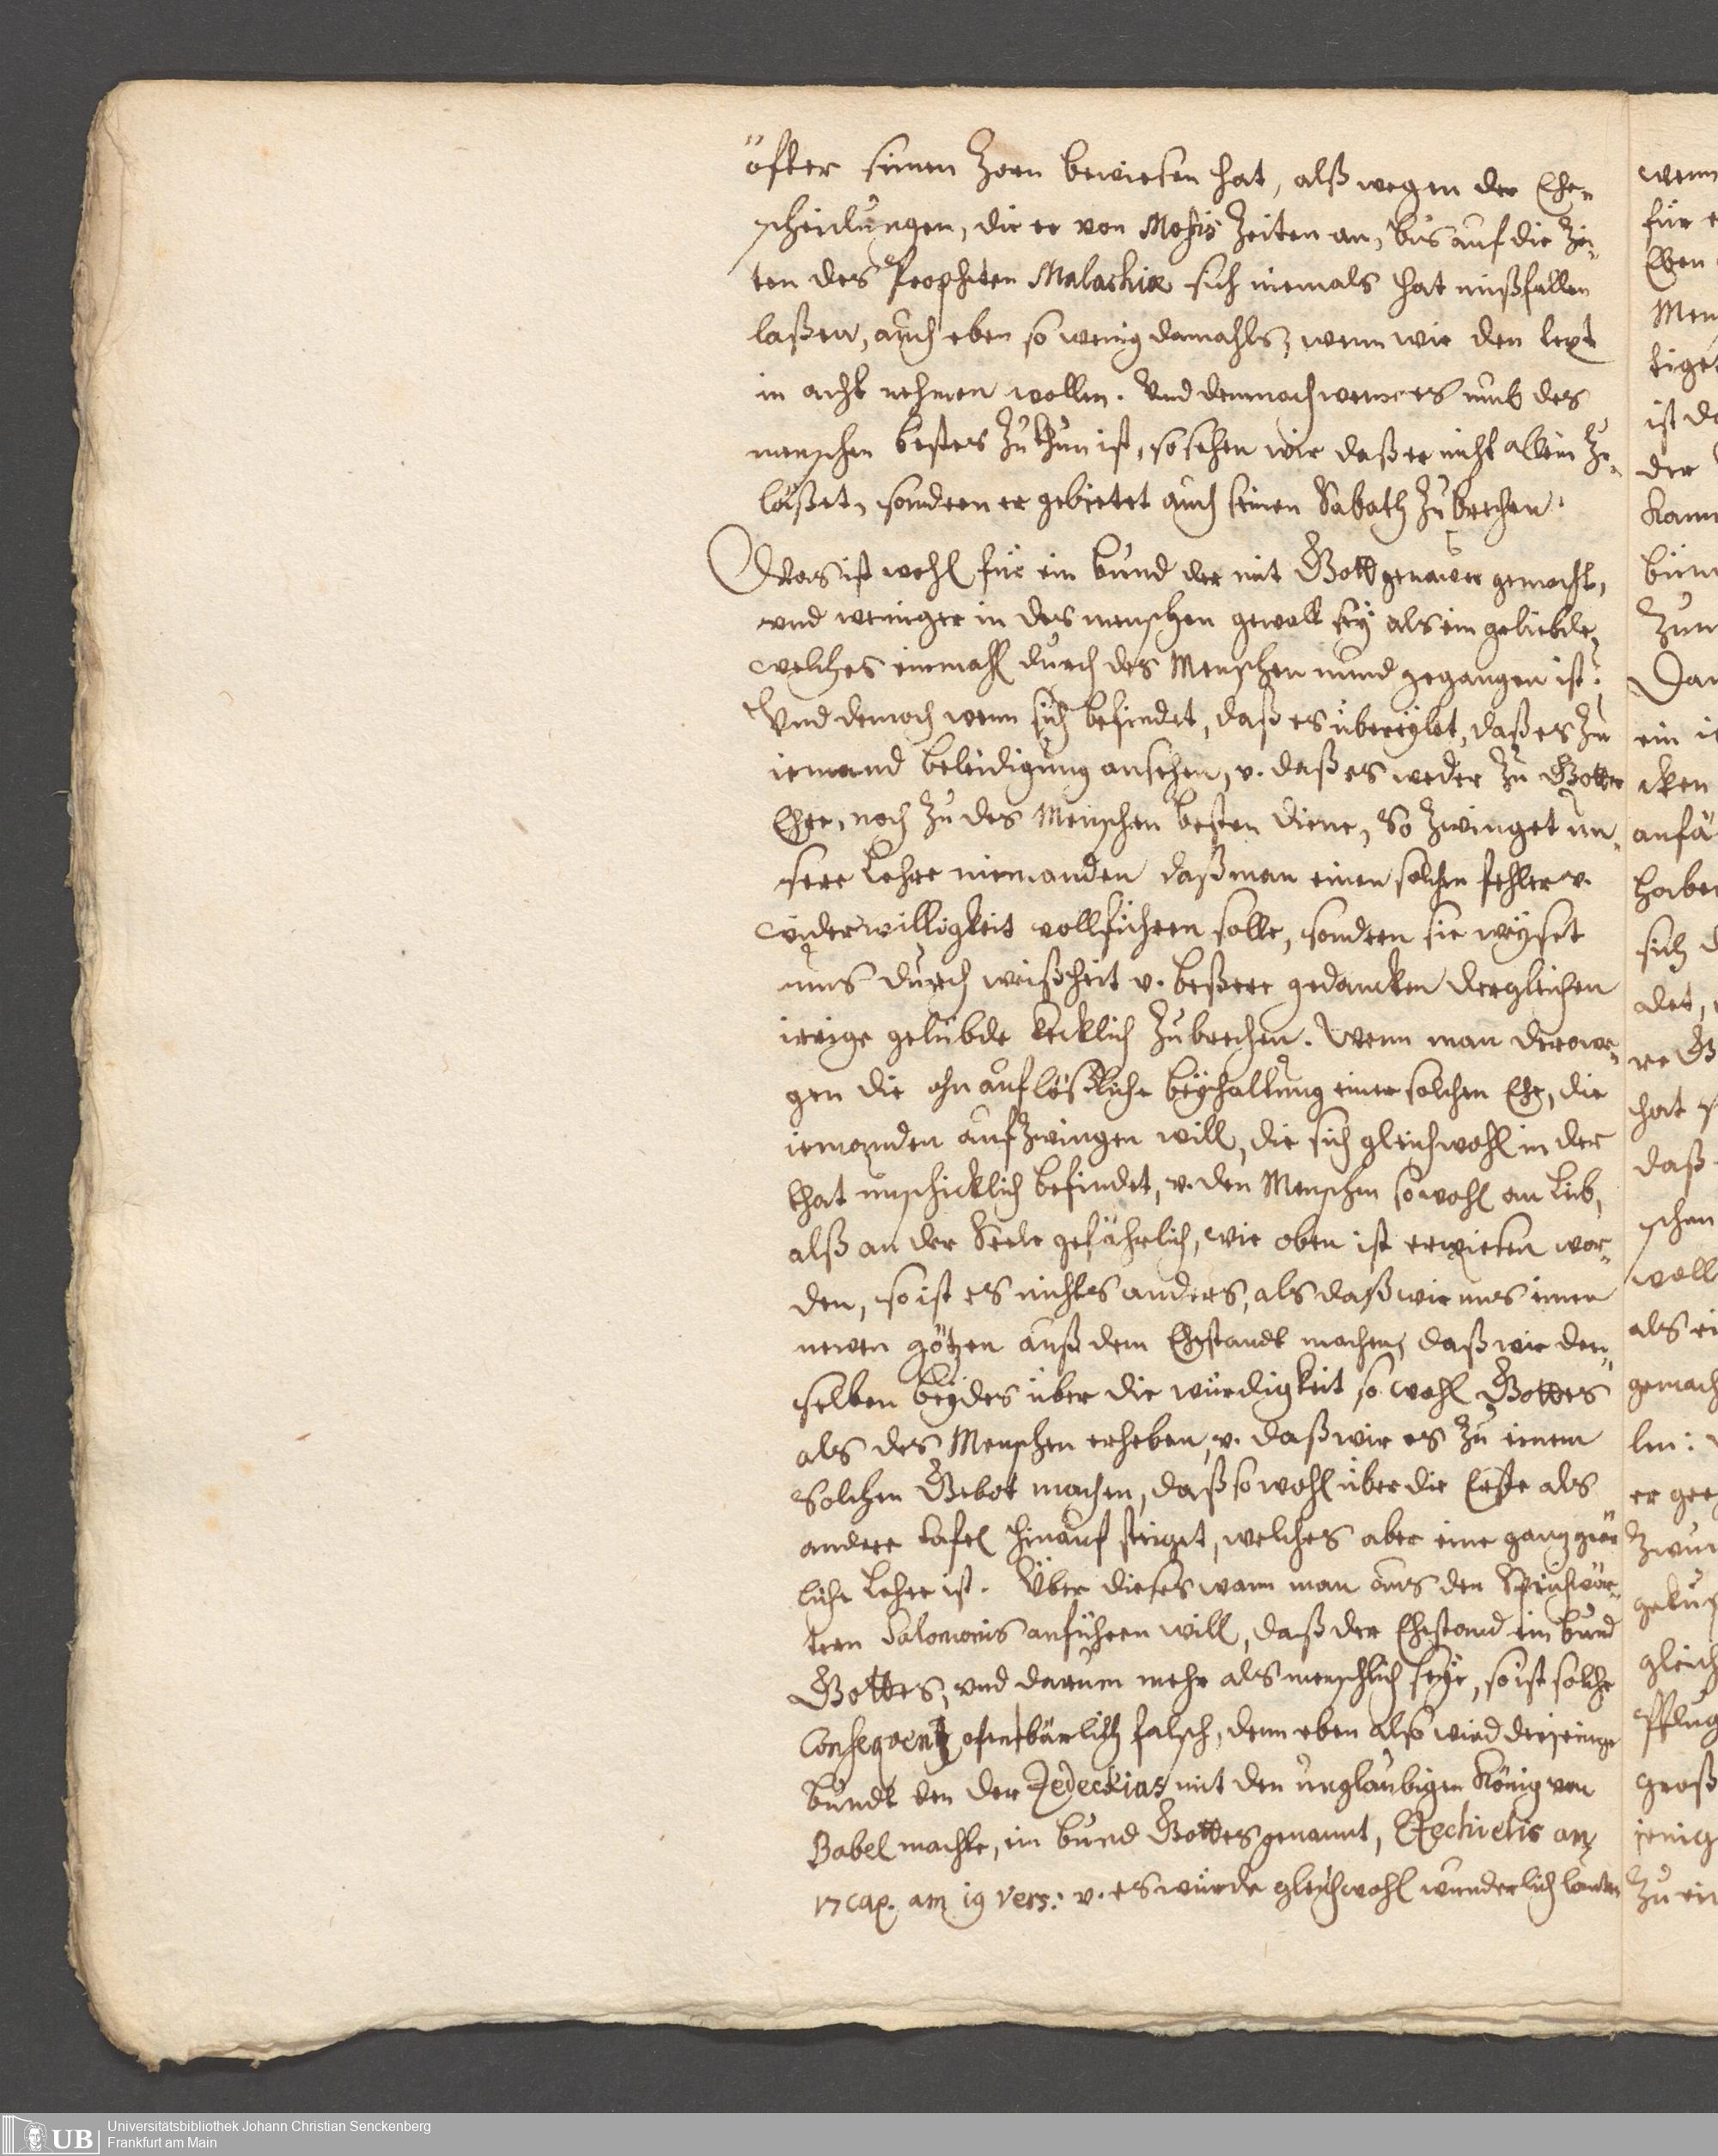 öfter seinen Zorn bewiesen hat, alß wegen der Ehe-
scheidungen, die er von Mosis Zeiten an, bis auf die Zei-
ten des Propheten Malachiæ sich niemals hat mißfallen
laßen, auch eben so wenig damahls, wenn wir den text
in acht nehmen wollen. Und dennoch wenn es umb des
menschen bestes zu thun ist, so sehen wir daß er nicht allein Zu-
läßet, sondern er gebietet auch seinen Sabath zu brechen.
Was ist wohl für ein bund der mit Gott genawer gemacht,
und weniger in des menschen gewalt sey als ein gelübde,
welches einmahl durch des Menschen mund gegangen ist?
Und dennoch wenn sich befindet, daß es übereylet, daß es zu
iemand beleidigung ansehen, v. daß es weder zu Gottes
Ehre, noch zu des Menschen besten diene, So zwinget un-
sere Lehre niemanden daß man einen solchen fehler v.
widerwilligkeit vollführen solle, sondern sie weyset
uns durch weißheit v. beßere gedancken dergleichen
irrige gelübde kecklich zu brechen. Wenn man derowe-
gen die ohnauflößliche beyhaltung einer solchen Ehe, die
iemanden aufzwingen will, die sich gleichwohl in der
that unschicklich befindet, v. den Menschen sowohl an Leib,
alß an der Seele gefährlich, wie oben ist erwiesen wor-
den, so ist es nichts anders, als daß wir uns einen
newen götzen auß dem Ehestandt machen, daß wir den-
selben beydes über die würdigkeit so wohl Gottes
als des Menschen erheben, v. daß wir es zu einem
solchen Gebot machen, daß so wohl über die Erste als
andere tafel hinauf steiget, welches aber eine gantz
liche Lehre ist. Über dieses wann man aus den Sprichwör-
tern Salomonis anführen will, daß der Ehestand ein bund
Gottes, und darum mehr als menschlich seye, so ist solche
Consequentz ofenbarlich falsch, denn eben also wird derjenige
bundt den der Zedeckias mit den unglaubigen König von
Babel machte, ein bund Gottes genannt, Ezechielis am
17 cap. am 19 vers: v. es würde gleichwohl wunderlich lauten
wenn
für
Eben
ist
der
Kann
ein
cken
haben
sich
hat
daß
schen
als
gemach
len:
er
gleich
groß
jenig